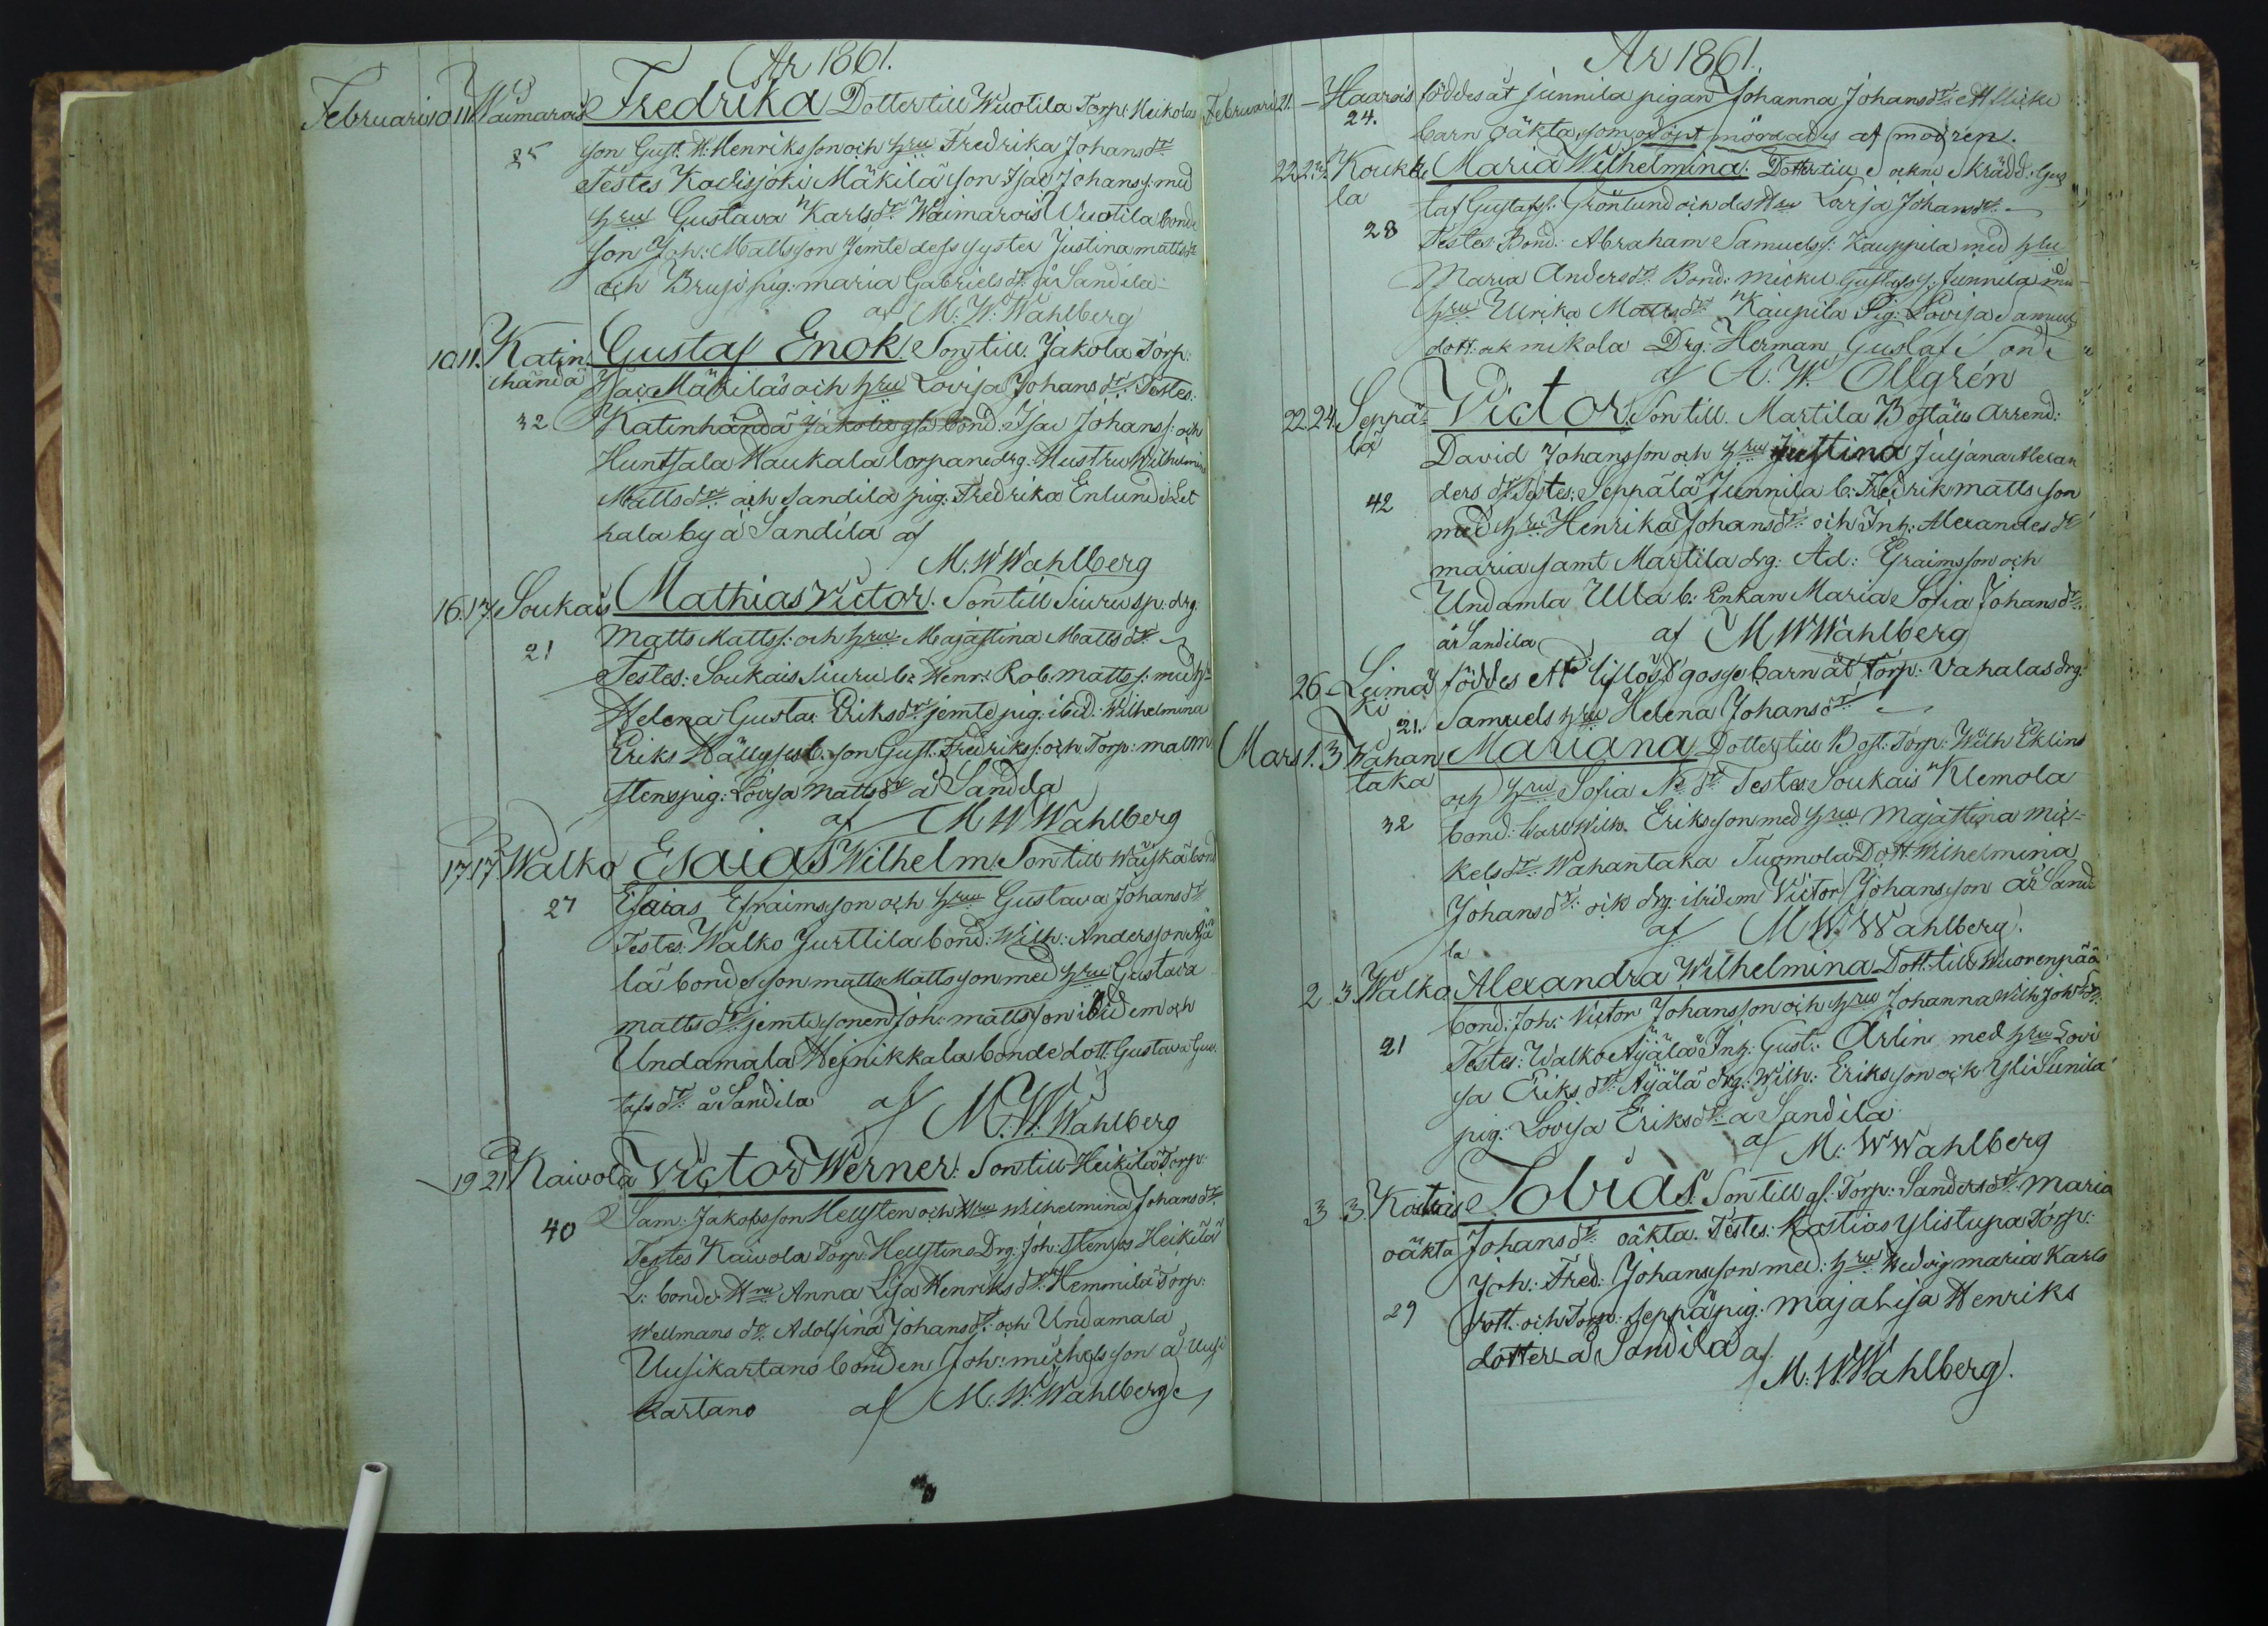 År 1861.
Februari 10. 11. Waimarois Fredrika Dotter till Wuotila Torp: Heikolas
25 son Gust. W. Henriksson och hru Fredrika Johans dr
Testes Kodisjoki Mäkilä son Isac Johans s: med
hru Gustava Karls dr Waimarois Wuotila bonde
son Joh: Mattsson jemte dess syster Justina Matts dr
och Brusi pig: Maria Gabriels dr å Sandila
af M: W: Wahlberg
10. 11. Katin Gustaf Enok Son till Jakola Torp:
händä Isac Mäkiläs och hru Lovisa Johans dr Testes:
32 Katinhändä Jakola bond: Isac Johans s: och
Huntsala Haukala torpare drg: Hustru Wilhelmina
Matts dr och Sandila pig: Fredrika Enlund i Let
kala by å Sandila af
M. W Wahlberg
16. 17. Soukais Mathias Victor. Son till Siuru sp: drg:
21 Matts Matts s: och hru Majastina Matts dr
Testes: Soukais Siuru b: Henr: Rob: Matts s: med hru
Helena Gustava Eriks dr jemte pig: ibid: Wilhelmina
Eriks Hällfors b. son Gust: Fredriks s: och Torp: Malm
stens pig: Lovisa Matts dr å Sandila
af M W Wahlberg
17. 17. Walko Esaias Wilhelm. Son till Wäiskä bond
27 Esaias Efraimsson och hru Gustava Johans dr
Testes: Walko Jurttila bond: Wilh: Andersson Äjä
lä bonde son Matts Mattsson med hru Gustava
Matts dr jemte sonen Joh: Mattsson ibidem och
Undamala Hejnikkala bonde dott: Gustava Gus
tafs dr å Sandila af M. W. Wahlberg
19 21 Kaivola Victor Werner: Son till Heikilä Torp:
40 Sam: Jakobsson Hellsten och Hru Wilhelmina Johans dr
Testes Kaivola Torp: Hellstens Drg: Joh: Stenros Heikilä
L: bonde Hru Anna Lisa Henriks dr Hemmilä Torp:
Wellmans dr Adolfina Johans dr och Undamala
Uusikartano bonden Joh: Michelsson å Uusi
kartano af M. W. Wahlberg
År 1861.
Februari 21. – Haarois föddes åt Junnila pigan Johanna Johans dr ett flicke
24. barn oäkta, som odöpt mördades af modren.
22. 23. Koukk Maria Wilhelmina. Dotter till Sockne Skrädd: Gus
la taf Gustafs s: Grönlund och des Hru Lovisa Johans dr
28 Testes: Bond: Abraham Samuels s: Kauppila med hru
Maria Anders dr Bond: Mickel Gustafs s: Junnila med
hru Ulrika Matts dr Kaupila Pig: Lovisa Samuels
dott: och Mikola Drg: Herman Gustaf Sond
af A. W. Ollgrén
22. 24. Seppä Victor Son till Martila Boställs Arrend:
lä David Johansson och hru Justina Juljana Alexan
42 ders dr Testes: Seppälä Junnila b: Fredrik Mattsson
med hru Henrika Johans dr och Inh: Alexanders dr
Maria samt Martila drg: Ad: Efraimsson och
Undamla Ulla b: Enkan Maria Sofia Johans dr
å Sandila af M W Wahlberg
26 – Leimä föddes ett liflöst gosse barn åt Torp: Vahalas drg:
ki 21. Samuels hru Helena Johans dr
Mars 1. 3. Wahan Mariana Dotter till Bost: Torp: Wilh Eklins
taka och hru Sofia N: dr Testes: Soukais Klemola
32 bond: Karl Wilh. Eriksson med hru Majastina Mic-
kels dr Wahantaka Tuomola Dott: Wilhelmina
Johans dr och drg: ibidem Victor Johansson å Sandi
la af M. W. Wahlberg.
2. 3. Walko Alexandra Wilhelmina Dott: till Wuorenpää
bond: Joh: Victor Johansson och hru Johanna Wilh Joh dr
21 Testes: Walko Äjälä Inh: Gust: Arlin med hru Lovi
sa Eriks dr Äjälä drg: Wilh: Eriksson och Yli Sunila
pig: Lovisa Eriks dr å Sandila
af M: W Wahlberg
3 3. Kastias Tobias. Son till gl: Torp: Sanders dr Maria
oäkta Johans dr oäkta. Testes: Kastias Ylistupa Torp:
Joh: Fred: Johansson med: hru Hedvig Maria Karls
29 dott: och Torp: Seppä pig: Majalisa Henriks
dotter å Sandila af
M. W. Wahlberg.